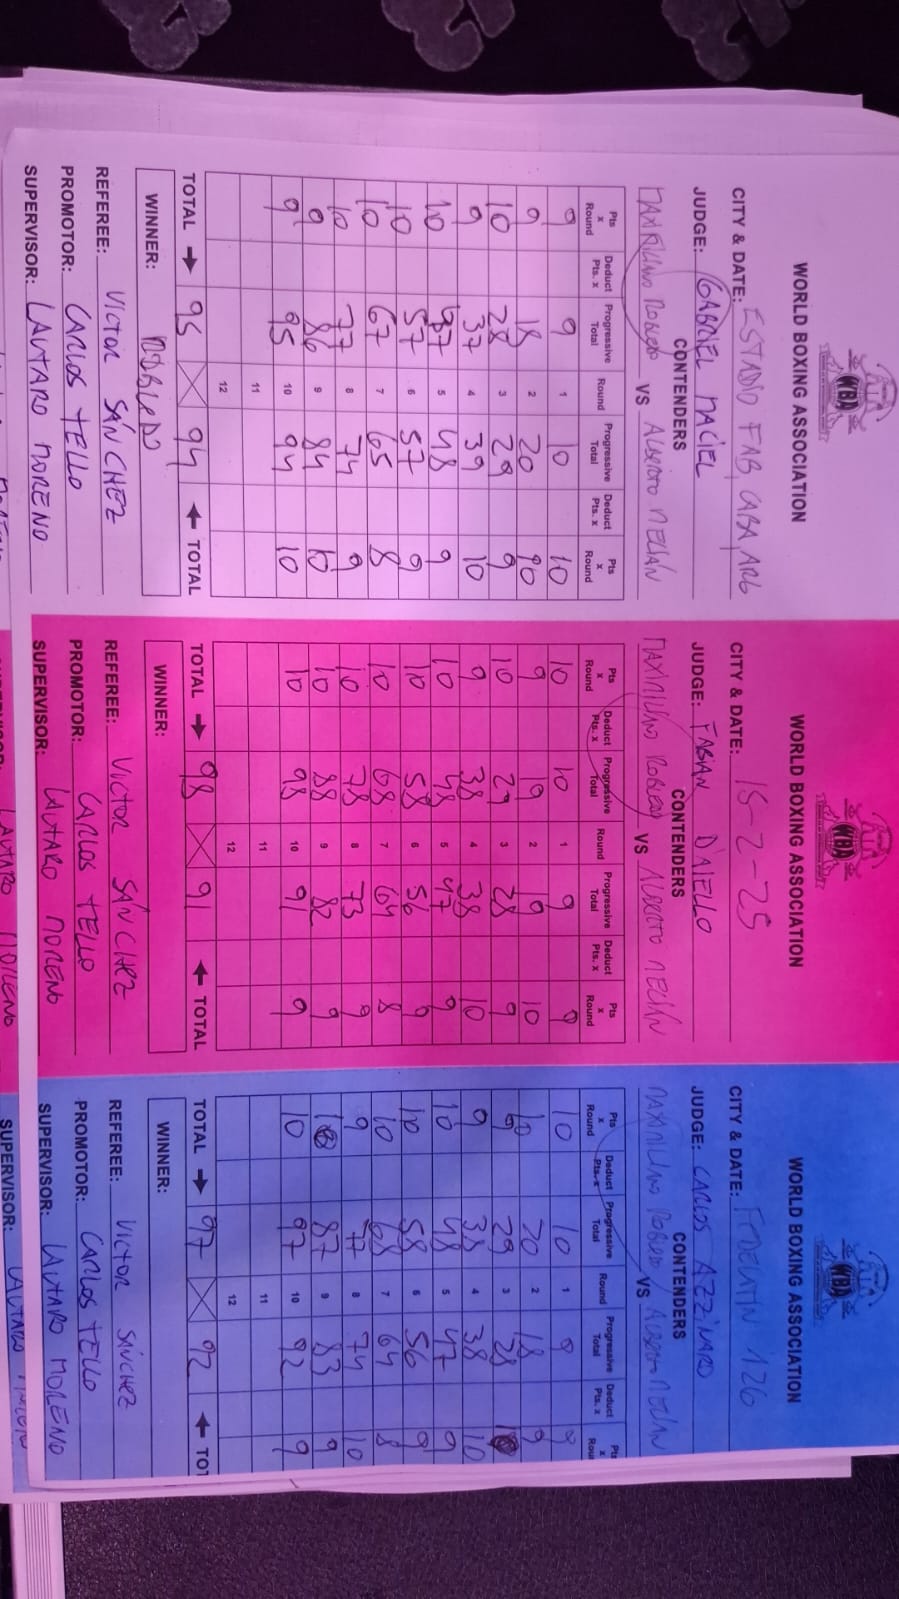 WBA
WORLD BOXING ASSOCIATION
CITY & DATE: ESTADIO FAB, CABA, ARG
JUDGE: GABRIEL MACIEL
CONTENDERS
MAXIMILIANO ROBLEDO VS ALBERTO MELIÁN
Pts x Round Deduct Pts. x Progressive Total Round Progressive Total Deduct Pts. x Pts x Round
9 9 1 10 10
9 18 2 20 10
10 28 3 29 9
9 37 4 39 10
10 47 5 48 9
10 57 6 57 9
10 67 7 65 8
10 77 8 74 9
9 86 9 84 10
9 95 10 94 10
11
12
TOTAL → 95 94 ← TOTAL
WINNER: ROBLEDO
REFEREE: VICTOR SÁNCHEZ
PROMOTOR: CARLOS TELLO
SUPERVISOR: LAUTARO MORENO
WBA
WORLD BOXING ASSOCIATION
CITY & DATE: 15-2-25
JUDGE: FABIAN DAIELLO
CONTENDERS
MAXIMILIANO ROBLEDO VS ALBERTO MELIÁN
Pts x Round Deduct Pts. x Progressive Total Round Progressive Total Deduct Pts. x Pts x Round
10 10 1 9 9
9 19 2 19 10
10 29 3 28 9
9 38 4 38 10
10 48 5 47 9
10 58 6 56 9
10 68 7 64 8
10 78 8 73 9
10 88 9 82 9
10 98 10 91 9
11
12
TOTAL → 98 91 ← TOTAL
WINNER:
REFEREE: VICTOR SÁNCHEZ
PROMOTOR: CARLOS TELLO
SUPERVISOR: LAUTARO MORENO
WBA
WORLD BOXING ASSOCIATION
CITY & DATE: 126
JUDGE: CARLOS AZZINARO
CONTENDERS
MAXIMILIANO ROBLEDO VS ALBERTO MELIÁN
Pts x Round Deduct Pts. x Progressive Total Round Progressive Total Deduct Pts. x Pts x Rou
10 10 1 9 9
10 20 2 18 9
9 29 3 28 10
9 38 4 38 10
10 48 5 47 9
10 58 6 56 9
10 68 7 64 8
9 77 8 74 10
10 87 9 83 9
10 97 10 92 9
11
12
TOTAL → 97 92 ← TOT
WINNER:
REFEREE: VICTOR SÁNCHEZ
PROMOTOR: CARLOS TELLO
SUPERVISOR: LAUTARO MORENO
SUPERVISOR: LAUTARO